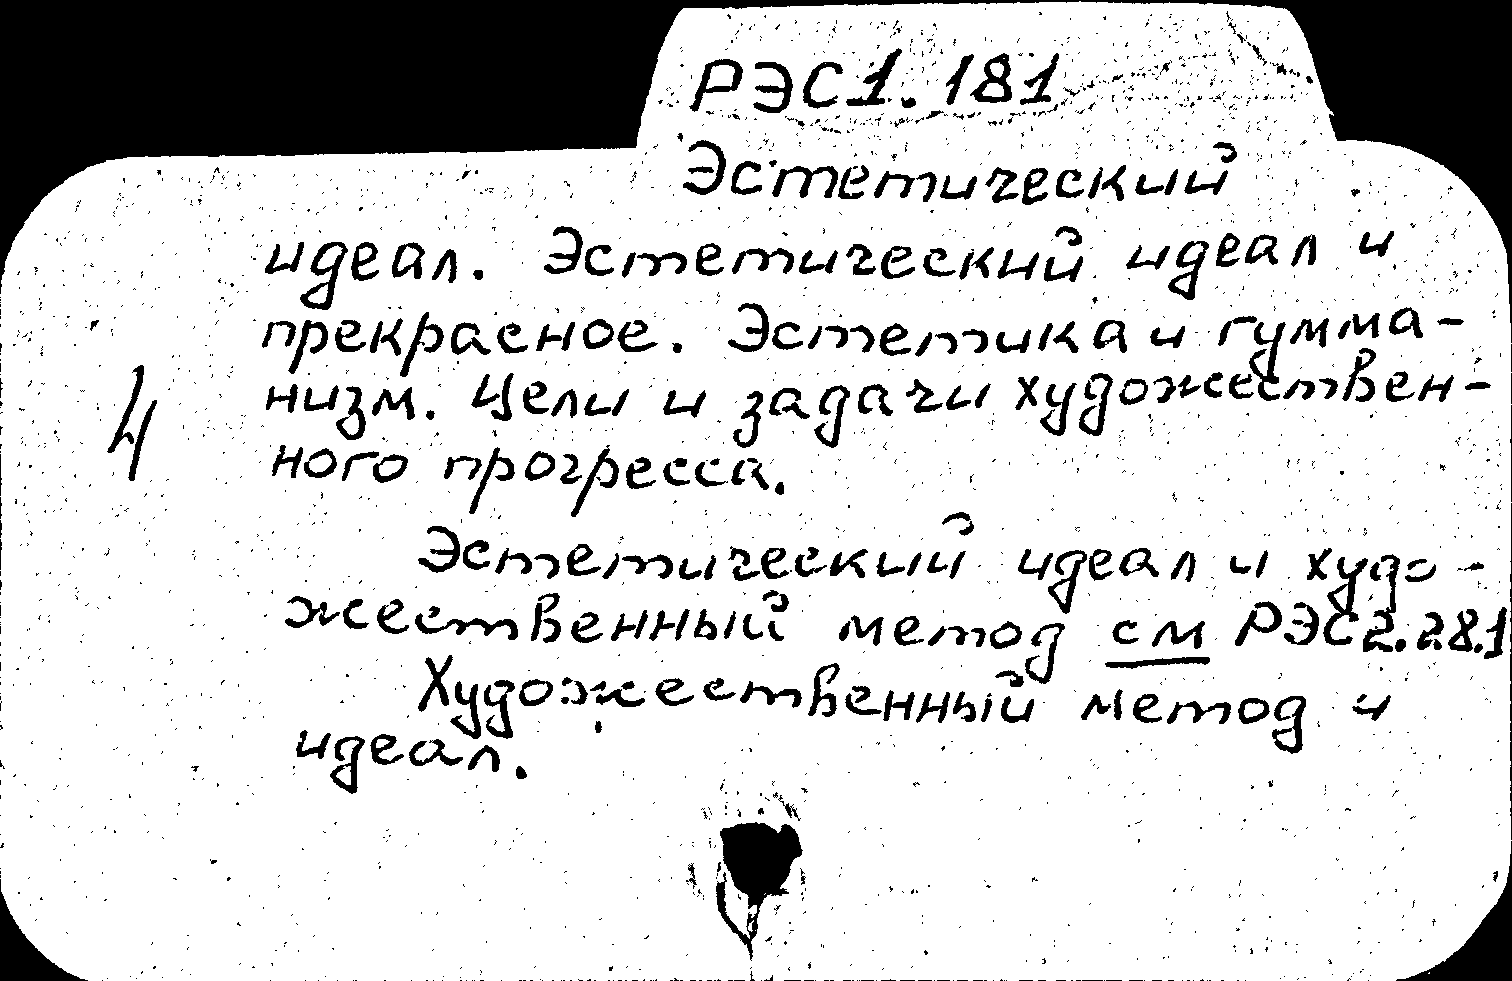 РЭС1.181
Эстетический
идеал. Эстетический идеал и
прекрасное. Эстетика и гумма-
низм. Цели и задачи художествен-
4
ного прогресса.
Эстетический идеал и худо-
жественный метод см РЭС2.28.1
Художественный метод и
идеал.